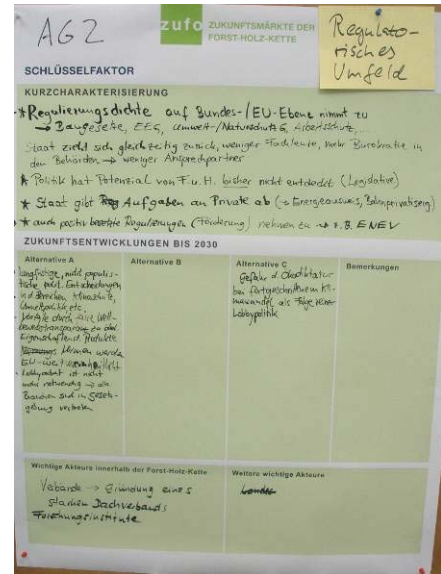 AG2
zufo ZUKUNFTSMÄRKTE DER
FORST-HOLZ-KETTE
Regulato-
risches
Umfeld
SCHLÜSSELFAKTOR
KURZCHARAKTERISIERUNG
* Regulierungsdichte auf Bundes-/EU-Ebene nimmt zu
→ Baugesetze, EEG, Umwelt-/Naturschutz, Arbeitsschutz,...
Staat zieht sich gleichzeitig zurück, weniger Fachleute, mehr Bürokratie in
den Behörden → weniger Ansprechpartner
* Politik hat Potenzial von F. u. H. bisher nicht entdeckt (Legislative)
* Staat gibt Aufgaben an Private ab (→ Energieausweis, Bahnprivatisierg)
* auch positiv besetzte Regulierungen (Förderung) nehmen zu → z.B. ENEV
ZUKUNFTSENTWICKLUNGEN BIS 2030
Alternative A
langfristige, nicht populis-
tische polit. Entscheidungen
in d. Bereichen Klimaschutz,
Umweltpolitik etc.
Vorteile durch faire Wett-
bewerbstransparenz zu den
Eigenschaften d. Produkte
Normen werden
EU-weit vereinheitlicht
Lobbyarbeit ist nicht
mehr notwendig → alle
Branchen sind in Gesetz-
gebung vertreten
Alternative B
Alternative C
Gefahr d. Ökodiktatur
bei fortgeschrittenem Kli-
mawandel als Folge
Lobbypolitik
Bemerkungen
Wichtige Akteure innerhalb der Forst-Holz-Kette
Verbände → Gründung eines
starken Dachverbands
Forschungsinstitute
Weitere wichtige Akteure